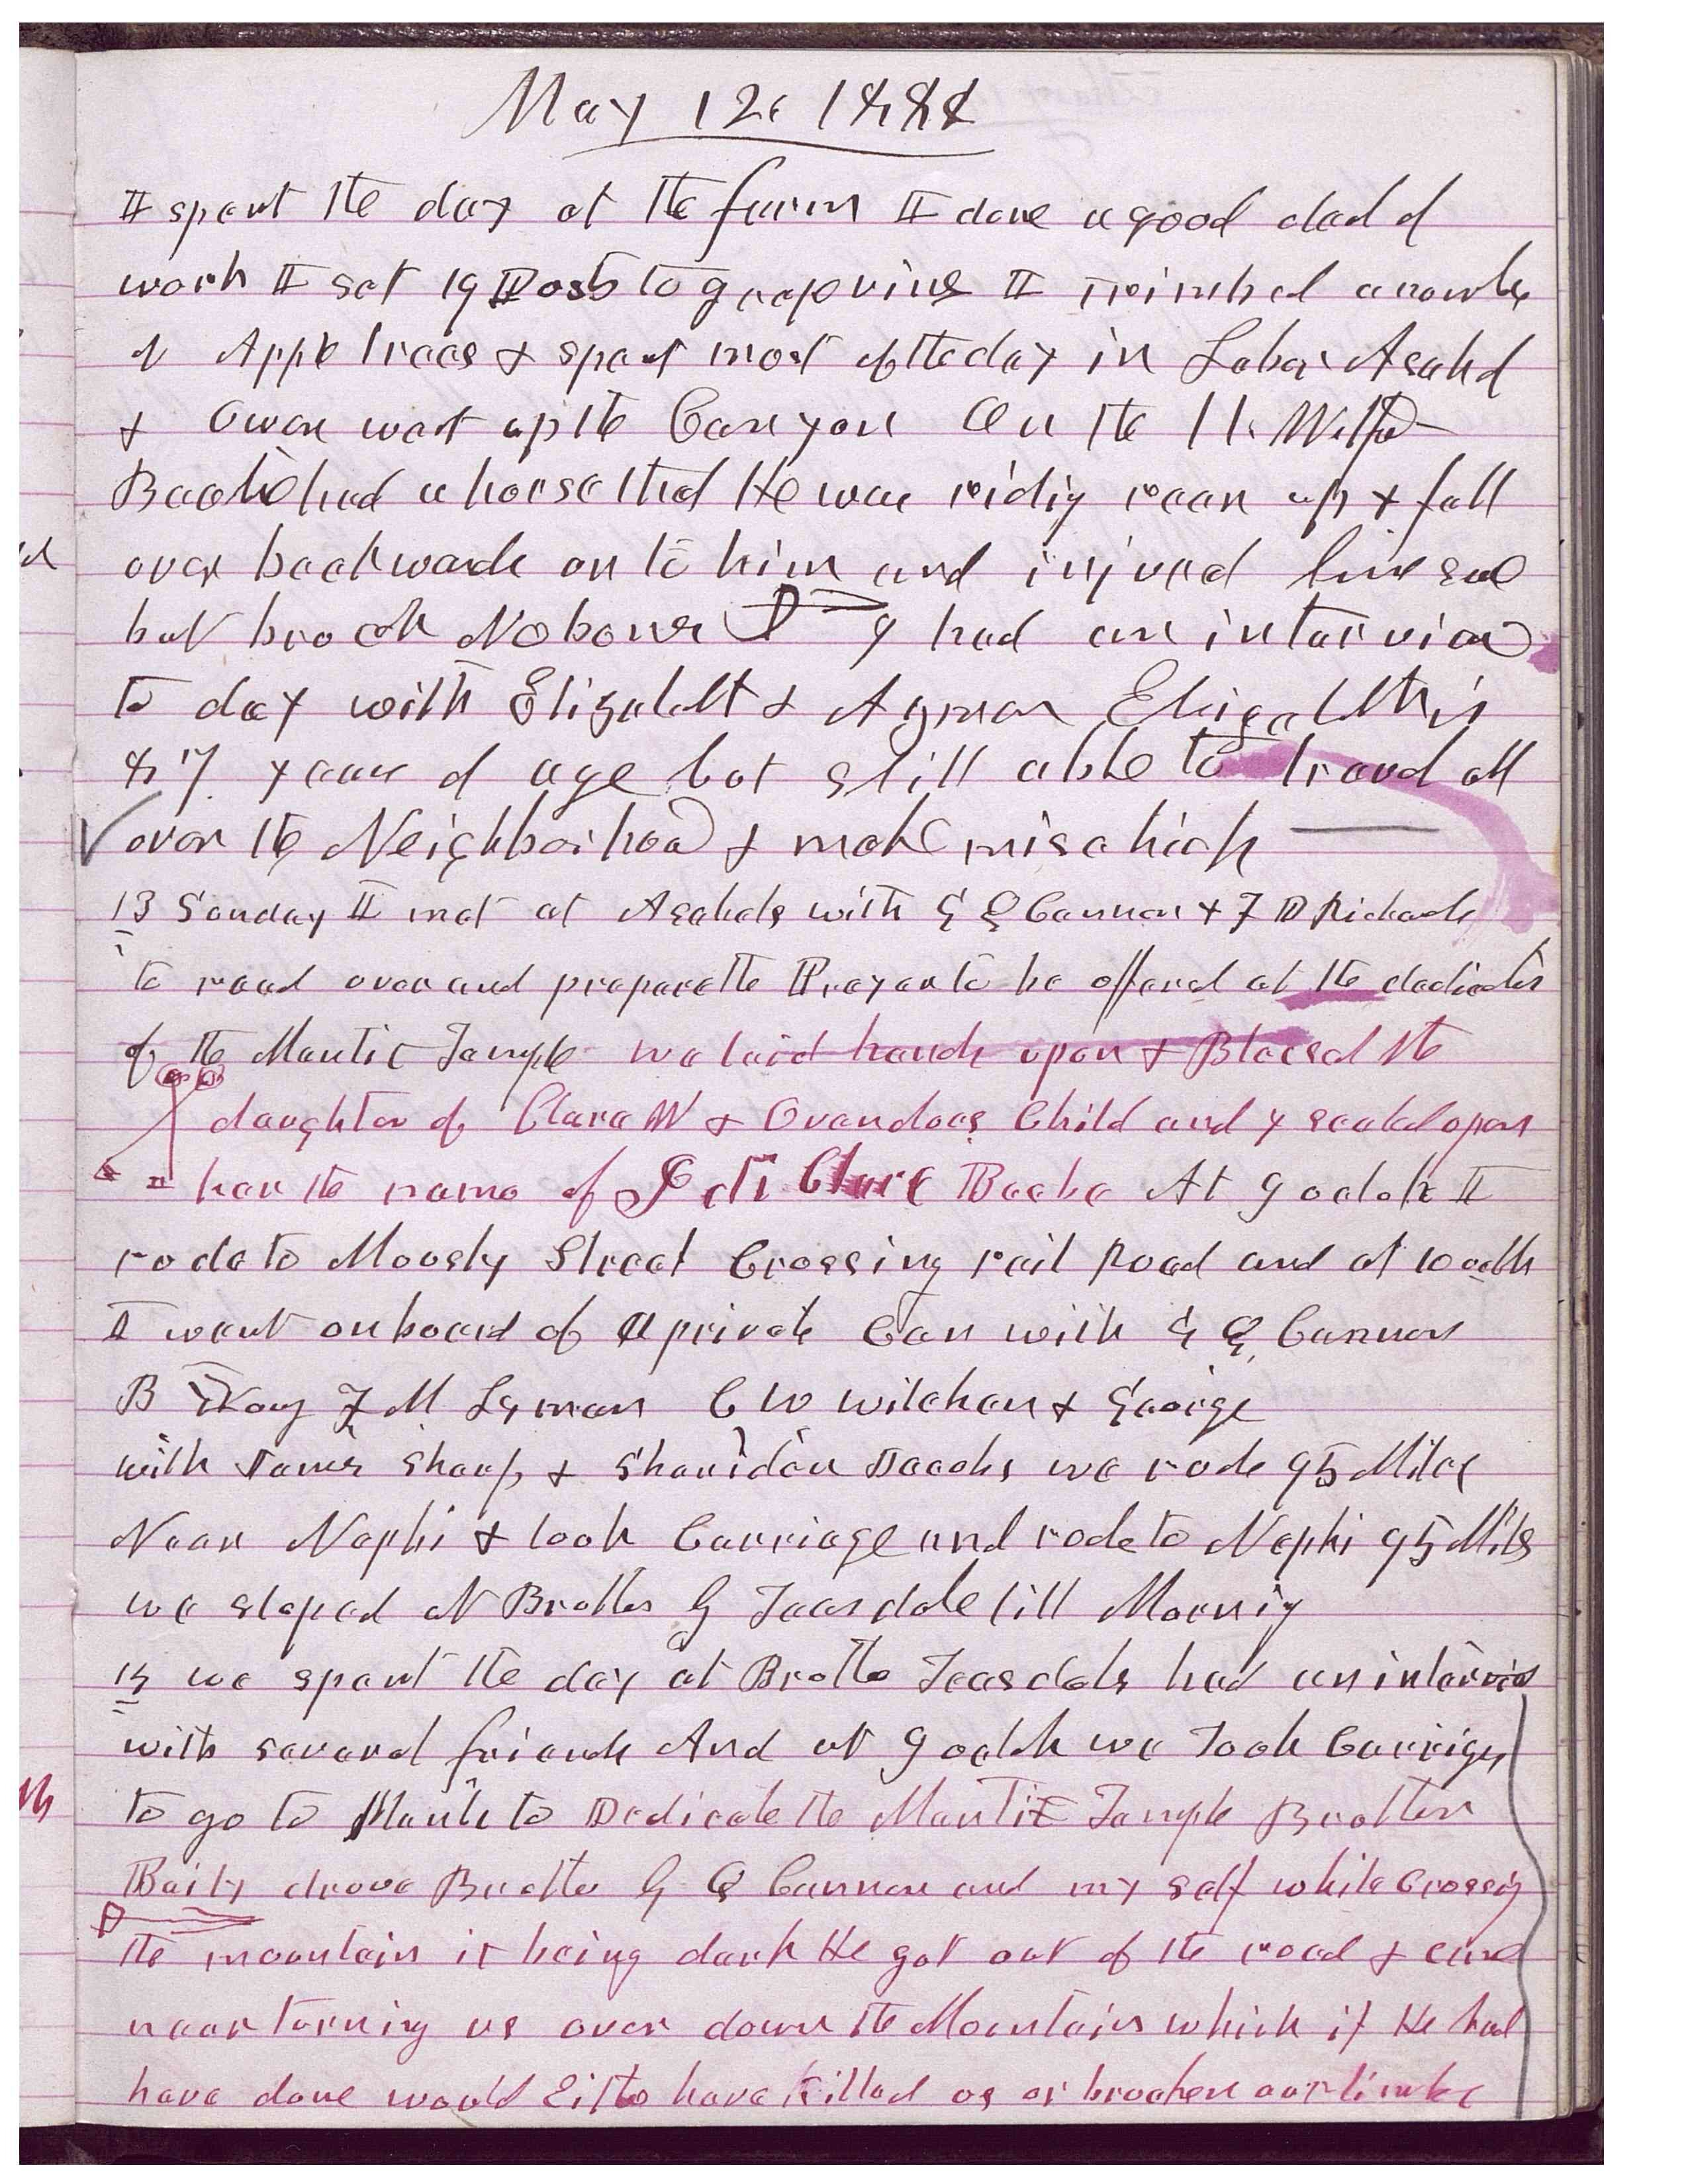 May 12, 1888
I spent the day at the farm I done a good deal of
work I set 19 Posts to grapevine I trimed a number
of Apple trees & spent most of the day in Labor Asahel
& Owen went up the Canyon On the 11 Wilford
Beebe had a horse that He was riding rear up & fall
over backwards on to him and injured him some
but broak No bones I had an interview
to day with Elizabeth & Ayman Elizabeth is
87 years of age but still able to travel all
over the Neighborhood & make mischief
13 Sunday I met at Asahels with G Q Cannon & F D Richards
to read over and prepare the Prayer to be offered at the dedication
of the Manti Temple we laid hands upon & Blessed the
daughter of Clara W & Ovandoes Child and I sealed upon
her the name of Clare Beebe At 9 oclok I
rode to Mousley Street Crossing rail Road and at 10 oclk
I went on board of a private Car with G Q Cannon
B Young F M Lyman C W Wilcken & George
with James Sharp & Sheridan Jacobs we rode 95 Miles
Near Nephi & took Carriage and rode to Nephi 95 Miles
we sleped at Brother G Teasdale till Morning
15 we spent the day at Brother Teasdales had an interview
with several friends And at 9 oclok we Took Carriges
to go to Manti to Dedicate the Manti Temple Brother
Baily drove Brother G Q Cannon and my self while Crossing
the mountain it being dark He got out of the road & came
near turning us over down the Mountain which if He had
have done would Either have killed us or broaken our limbs